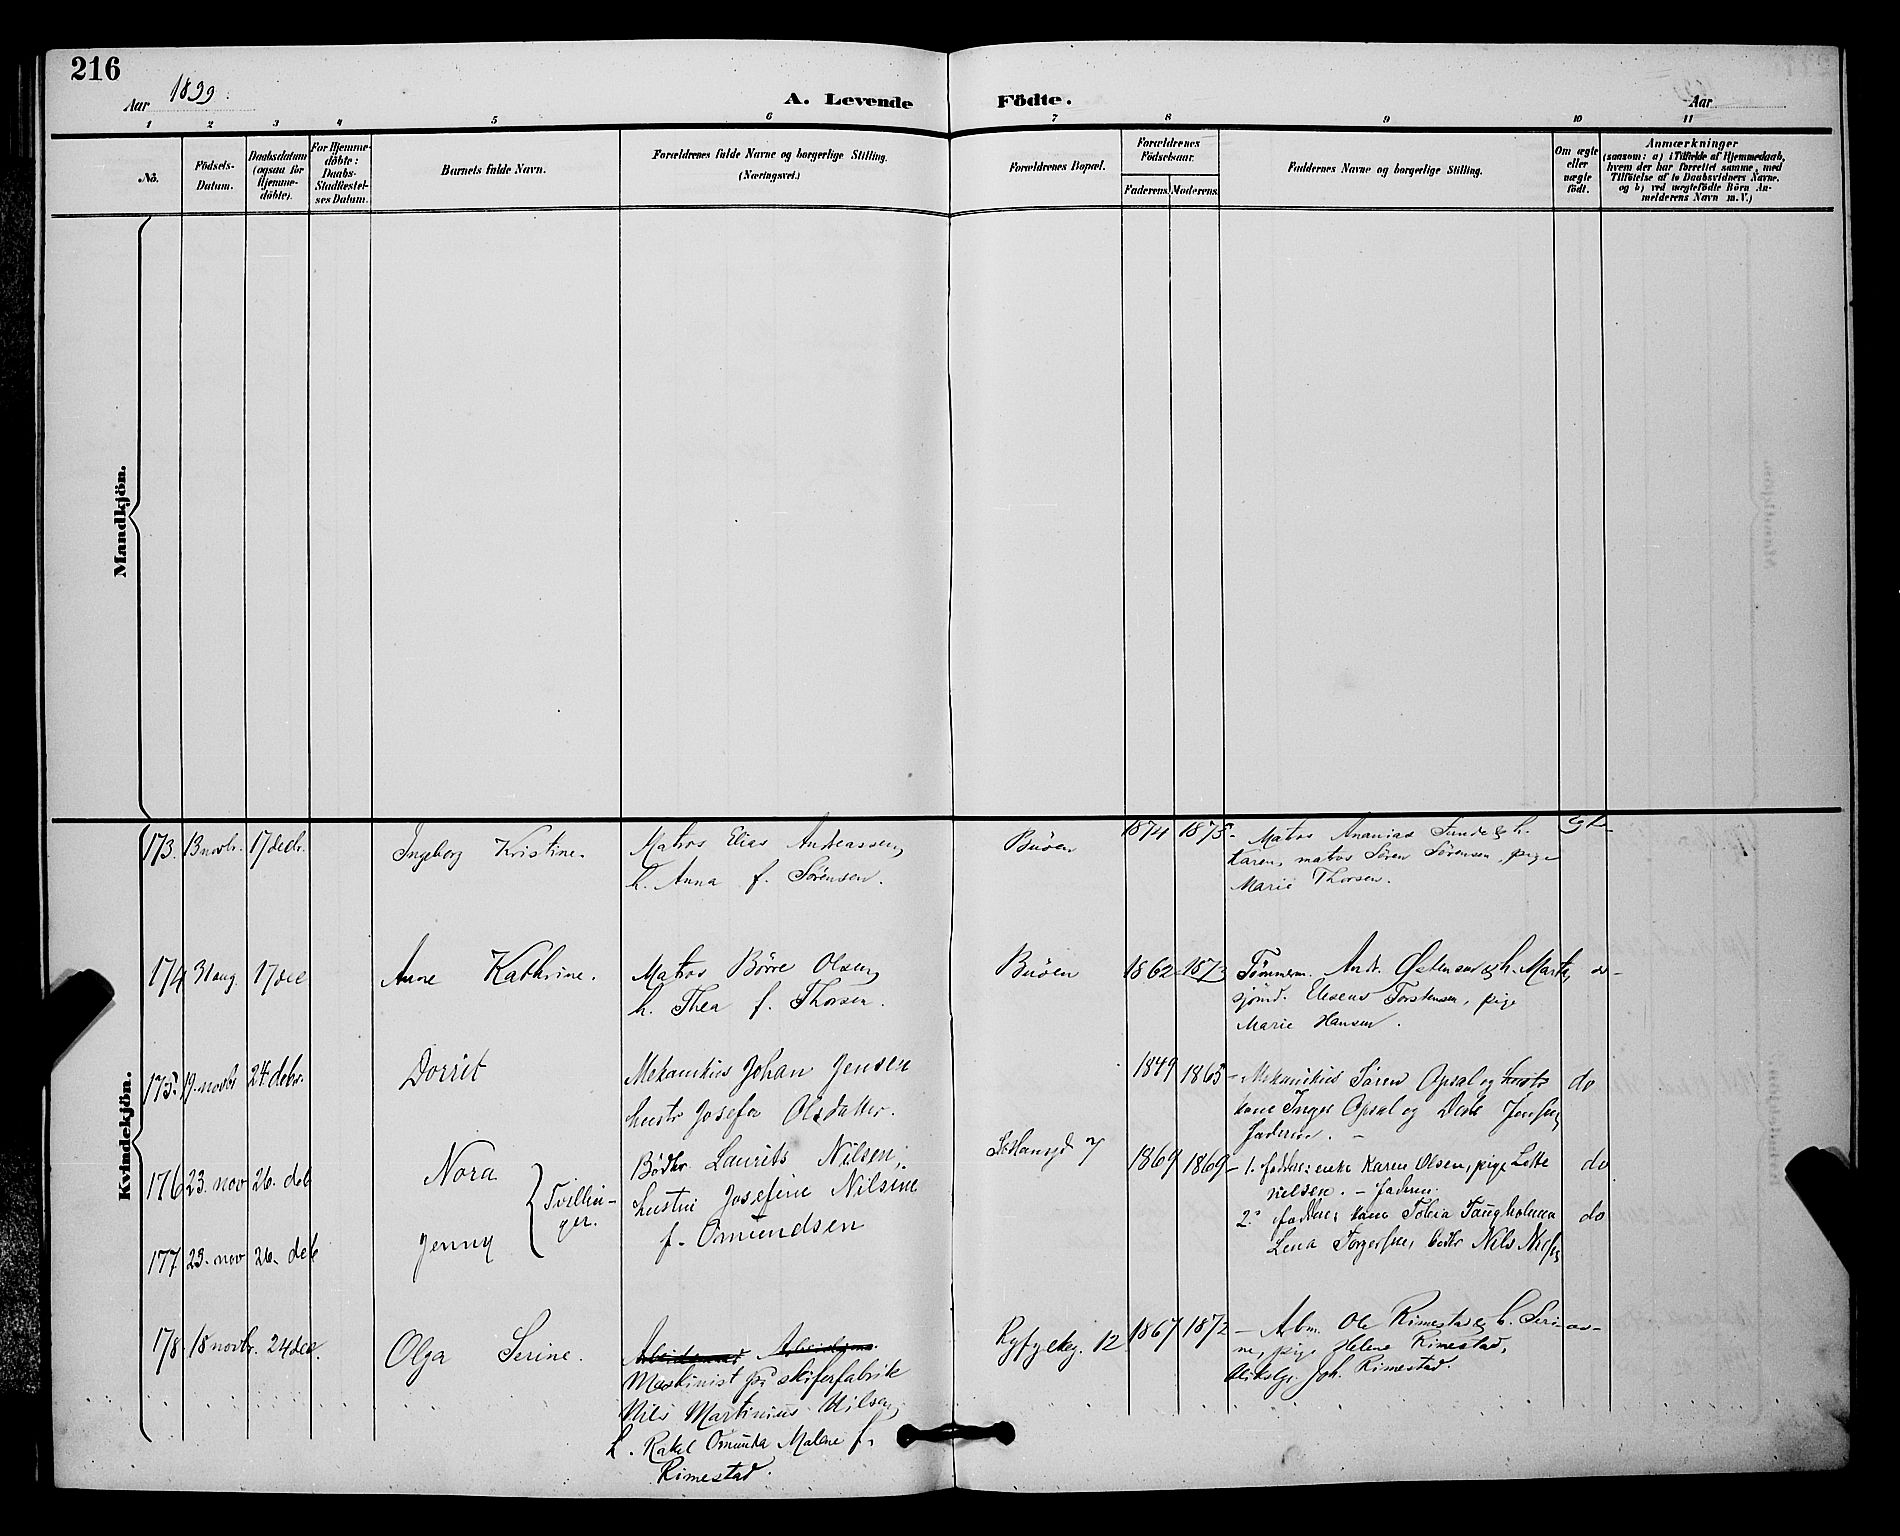 216
Aar 1899.
A. Levende Födte.
Aar
1 2 3 4 5 6 7 8 9 10 11
No.
Födsels-
Datum.
Daabsdatum
(ogsaa for
Hjemme-
döbte).
For Hjemme-
döbte:
Daabs-
Stadfestel-
ses Datum.
Barnets fulde Navn.
Forældrenes fulde Navne og borgerlige Stilling.
(Næringsvei.)
Forældrenes Bopæl.
Forældrenes
Födselsaar.
Faderens. Moderens.
Faddernes Navne og borgerlige Stilling.
Om ægte
eller
uægte
födt.
Anmærkninger
(saasom: a) i Tilfælde af Hjemmedaab,
hvem der har forrettet samme, med
Tilföielse af to Daabsvidners Navne.
og b) ved uægtefödte Börn An-
melderens Navn m. V.)
Mandkjön.
Kvindekjön.
173. 13 novbr. 17 decbr. Ingeborg Kristine.
Matros Elias Andreassen,
h. Anna f. Sörensen.
Buöen
1874 1875-
Matros Ananias Tunde & h.
Karen, matros Sören Sörensen, pige
Marie Thorsen.
174 31 aug. 17 dec Anne Kathrine.
Matros Börre Olsen,
h. Thea f. Thorsen.
Buöen
1862 1873
Tömmerm. Andr. Östensen & h. Marte,
sjömd. Eleseus Torstensen, pige
Marie Hansen.
175. 19. novbr 24. debr. Dorrit
Mekanikus Johan Jensen
hustr Josefa Olsdatter.
1849 1865
- Mekanikus Sören Opsal og hustr
kone Inger Opsal og Jensen,
faderen. -
do
176 23. nov 26. deb Nora
177. 23. nov 26. deb Jenny
Tvillin-
ger.
Bödker Laurits Nilsen,
hustru Josefine Nilsine
f. Omundsen
7
1869 1869
- 1. faddere: enke Karen Olsen, pige Lotte
nielsen. - faderen.
do
2. faddere kone Tolina
Lena Torgersen, bödkr Nils Nilsen
do
178. 18 novbr. 24 dec. Olga Serine.
Maskinist på skiferfabrik
Nils Martinius Nilsen,
h. Rakel Omunda Malene f.
Rimestad.
Ryfylkeg. 12
1867 1872
- Arbm. Ole Rimestad & h. Seri-
ne, pige Helene Rimestad,
Joh. Rimestad.